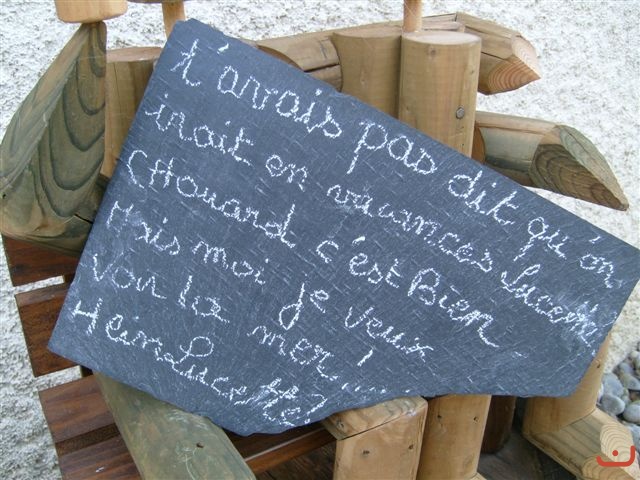 t'avais pas dit qu'on
irait en vacances Lucette
CHouard c'est Bien
Mais moi je veux
Voir la mer!.....
Hein Lucette?